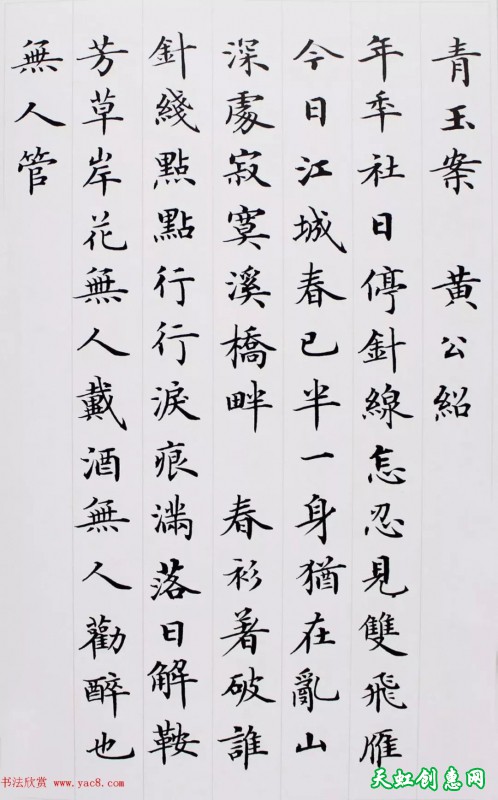 青玉案　黄公紹
年年社日停針線怎忍見雙飛雁
今日江城春已半一身猶在亂山
深處寂寞溪橋畔　春衫著破誰
針綫點點行行淚痕滿落日解鞍
芳草岸花無人戴酒無人勸醉也
無人管
书法欣赏 www.yac8.com
天虹创惠网